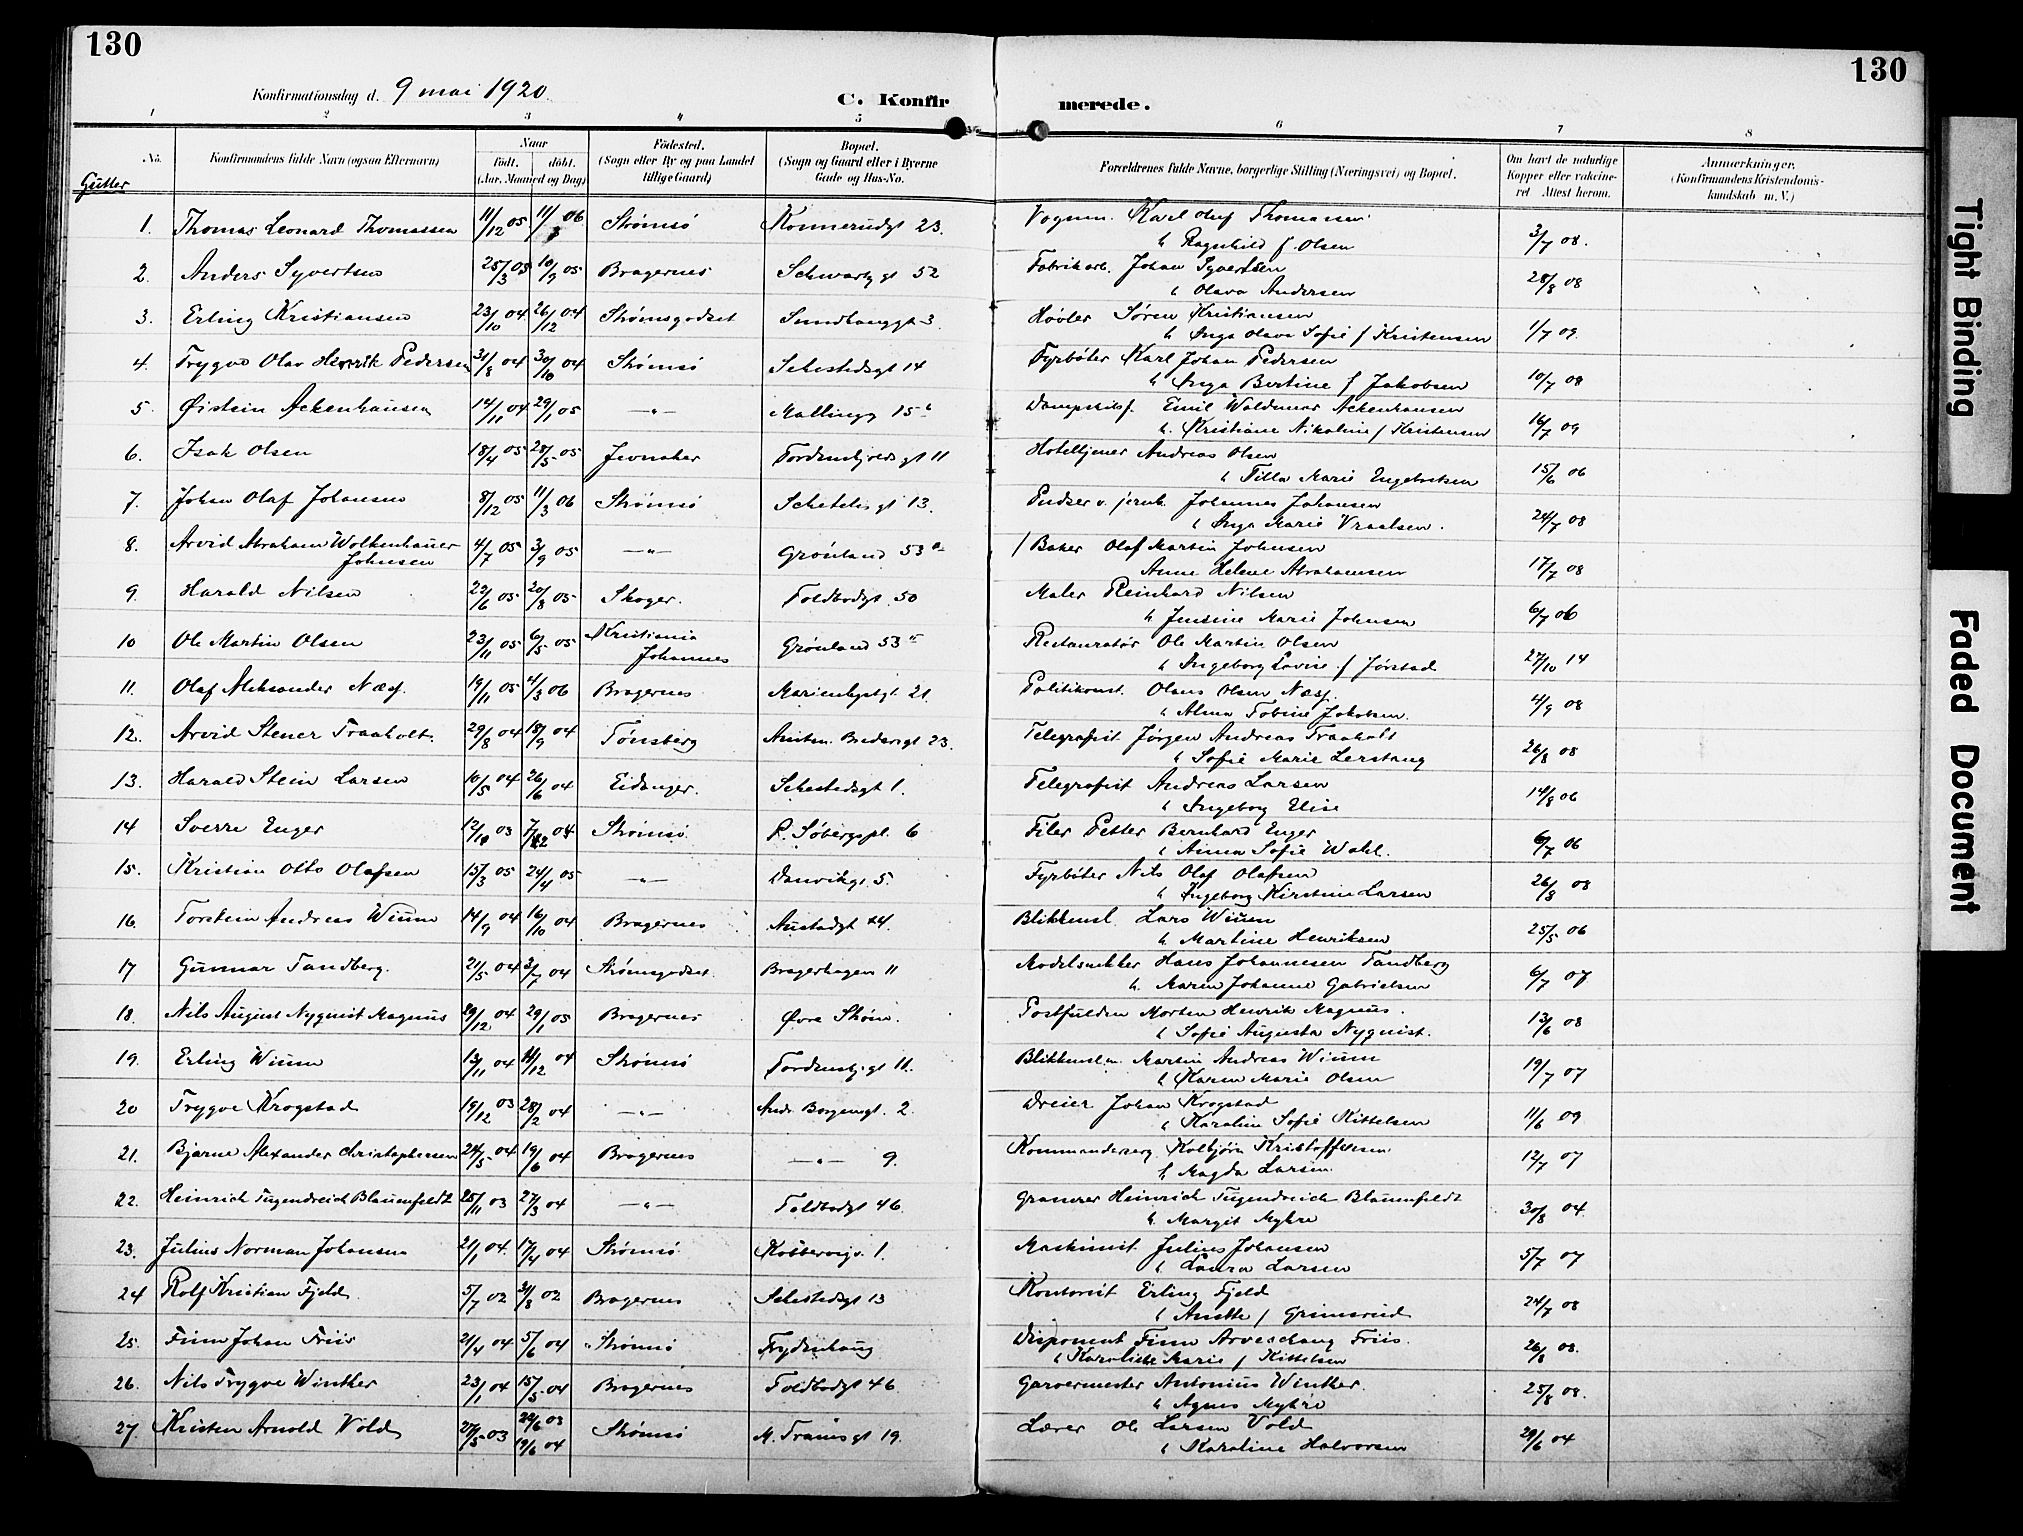 130
130
Konfirmationsdag d. 9 mai 1920
C. Konfirmerede.
1 2 3 4 5 6 7 8
No. Konfirmandens fulde Navn (ogsaa Efternavn) Naar födt. döbt. (Aar, Maaned og Dag) Födested. (Sogn eller By og paa Landet tillige Gaard) Bopæl. (Sogn og Gaard eller i Byerne Gade og Hus-No. Forældrenes fulde Navne, borgerlige Stilling (Næringsvei) og Bopæl. Om havt de naturlige Kopper eller vaccineret Attest herom. Anmærkninger. (Konfirmandens Kristendomskundskab m. V.)
Gutter
1. Thomas Leonard Thomassen 11/12 05 11/3 06 Strømsø Konnerudgt 23. Vognm. Karl Oluf Thomassen 3/7 08.
" Ragnhild f. Olsen
2. Anders Syvertsen 25/3 05 10/9 05 Bragernes Schwartzgt 52 Fabrikarb. Johan Syvertsen 28/8 08
" Olava Andersen
3. Erling Kristiansen 23/10 04 26/12 04 Strømsgodset Sundhauggt 3. Høvler Søren Kristiansen 1/7 09.
" Inga Olava Sofie f Kristensen
4. Trygve Olav Henrik Pedersen 31/8 04 30/10 04 Strømsø Sehestedsgt 14 Fyrbøter Karl Johan Pedersen 10/7 08
" Inga Bertine f Jakobsen
5. Øistein Ackenhausen 14/11 04 29/1 05 —"— Mallinggt 15 b Dampskibsf. Emil Waldemar Ackenhausen 16/7 09
" Kristiane Nikoline f Kristensen
6. Isak Olsen 18/4 05 28/5 05 Jevnaker Tordenskjoldsgt 11 Hoteltjener Andreas Olsen 15/6 06
" Tilla Marie Engebretsen
7. Johan Olaf Johansen 8/12 05 11/3 06 Strømsø Scheteligsgt 13. Pudser v. jernb. Johannes Johansen 24/7 08
" Inga Marie Vraalsen.
8. Arvid Abraham Wolkenhauer Johnsen 4/7 05 3/9 05 —"— Grønland 53 a f Baker Olaf Martin Johnsen 17/7 08
Anna Helene Abrahamsen
9. Harald Nilsen 29/6 05 20/8 05 Skoger. Toldbodgt. 50 Maler Reinhard Nilsen 6/7 06
" Jensine Marie Johnsen
10 Ole Martin Olsen 23/11 05 6/5 05 Kristiania Johannes Grønland 53 a Restauratør Ole Martin Olsen 27/10 14
" Ingeborg Lovise f Jørstad
11. Olaf Aleksander Næss. 19/11 05 4/3 06 Bragernes Marienlystgt. 21. Politikonst. Olaus Olsen Næss. 4/9 08
" Alma Tobine Jakobsen.
12. Arvid Stener Traaholt. 29/8 04 18/9 04 Tønsberg Amtm. Bredersgt 23. Telegrafist Jørgen Andreas Traaholt 26/8 08
" Sofie Marie Lerstang
13. Harald Stein Larsen 10/5 04 26/6 04 Eidanger. Sehestedsgt 1. Telegrafist Andreas Larsen 14/8 06
" Ingeborg Elise
14 Sverre Enger 12/10 03 7/12 03 Strømsø P. Søbergspl. 6 Filer Petter Bernhard Enger 6/7 06
" Anna Sofie Wahl.
15. Kristian Otto Olafsen 15/3 05 24/4 05 —"— Danvikgt. 5. Fyrbøter Nils Olaf Olafsen 26/8 08
" Ingeborg Kirstine Larsen
16. Torstein Andreas Wium 14/9 04 16/10 04 Bragernes Austadgt 44. Blikkensl. Lars Wium 25/5 06
" Martine Henriksen
17 Gunnar Tandberg. 21/5 04 3/7 04 Strømsgodset. Bragerhagen 11 Modelsnekker Hans Johannesen Tandberg 6/7 07
" Maren Johanne Gabrielsen
18. Nils August Nyquist Magnus 29/12 04 29/1 05 Bragernes Øvre Strøm. Postfuldm Morten Henrik Magnus. 13/6 08
" Sofie Augusta Nyquist.
19. Erling Wium 13/11 04 11/12 04 Strømsø Tordenskj.gt 11. Blikkenslm. Martin Andreas Wium 19/7 07
" Karen Marie Olsen
20 Trygve Krogstad 19/12 03 28/2 04 —"— Andr. Borgengt. 2. Dreier Johan Krogstad 11/6 09
" Karoline Sofie Kittelsen
21. Bjarne Alexander Christophersen 24/5 04 19/6 04 Bragernes —"— 9. Kommandersrg. Kolbjørn Kristoffersen 12/7 07
" Magda Larsen
22. Heinrich Tugendreich Blauenfeldt 25/11 03 27/3 04 —"— Toldbodgt 46. Gravører Heinrich Tugendreich Blauenfeldt 30/8 04.
" Margit Myhre
23. Julius Norman Johansen 21/1 04. 17/4 04 Strømsø 1. Maskinist. Julius Johansen 5/7 07
" Laura Larsen
24 Rolf Kristian Fjeld. 5/7 02 31/8 02 Bragernes Sehestedsgt 13 Kontorist Erling Fjeld 24/7 08
" Anette f Grimsrud
25. Finn Johan Friis 21/4 04 5/6 04 Strømsø Frydenhaug Disponent Finn Arveschoug Friis. 26/8 08.
" Karoline Marie f Kittelsen
26. Nils Trygve Winther 23/1 04 15/5 04 Bragernes Toldbodgt 46. Garvermester Antonius Winther. 25/8 08.
" Agnes Myhre
27 Kristen Arnold Vold 27/5 03 22/6 03 19/6 04 Strømsø M. Tranesgt 19. Lærer Ole Larsen Vold 29/6 04
" Karoline Halvorsen
Tight Binding
Faded Document